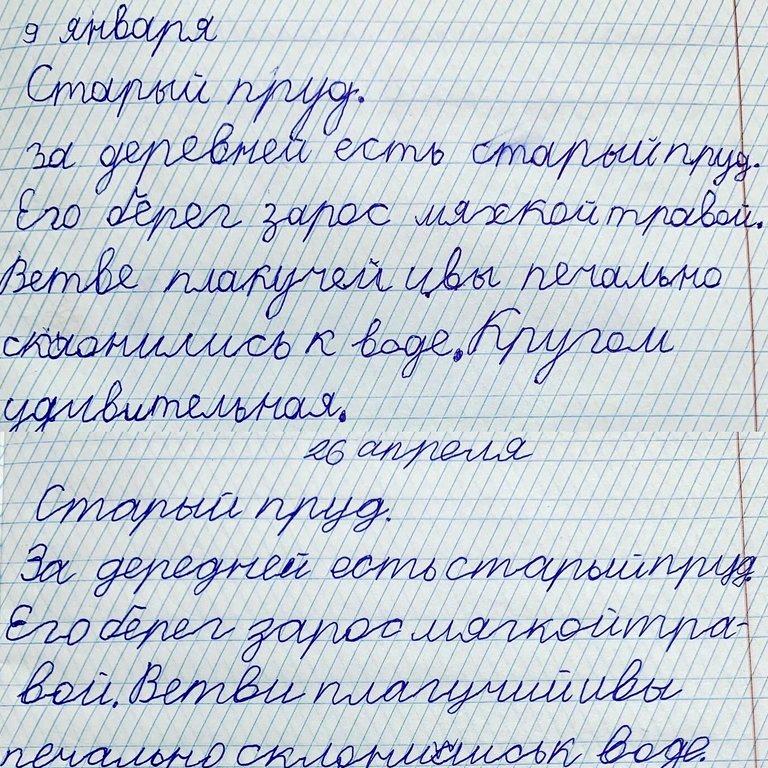 9 января
Старый пруд.
за деревней есть старый пруд.
Его берег зарос мяхкой травой.
Ветве плакучей ивы печально
склонились к воде. Кругом
удивительная.
26 апреля
Старый пруд.
За дередней есть старый пруд.
Его берег зарос мягкой тра-
вой. Ветви плагучий ивы
печально склонились к воде.